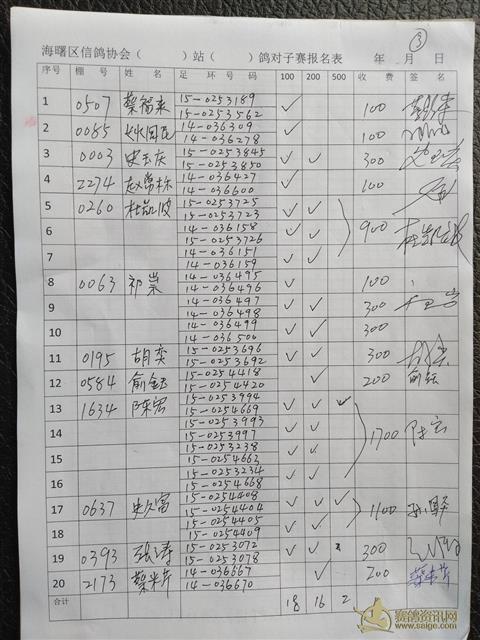 ③
海曙区信鸽协会（ ）站（ ）鸽对子赛报名表 年 月 日
序号 棚号 姓名 足环号码 100 200 500 收费 签名
1 0507 蔡福来 15-0253189 ✓ 100
15-0253562
2 0085 14-036309 ✓ 100
14-036278
3 0003 史玉庆 15-0253845 ✓ ✓ 300
15-0253850
4 2274 14-036427 ✓ 100
14-036600
5 0260 杜凯波 15-0253725 ✓ ✓ 900 杜凯波
15-0253723
6 14-036158 ✓ ✓
15-0253726
7 14-036151 ✓ ✓
14-036159
8 0063 祁崇 14-036495 ✓ 100
14-036496
9 14-036497 ✓ ✓ 300
14-036498
10 14-036499 ✓ ✓ 300
14-036500
11 0195 胡奕 15-0253696 ✓ ✓ 300
15-0253692
12 0584 俞钰 15-0254418 ✓ 200 俞钰
15-0254420
13 1634 陈宏 15-0253994 ✓ ✓ ✓ 1700 陈宏
15-0254669
14 15-0253993 ✓ ✓
15-0253997
15 15-0253238 ✓ ✓
15-0254663
16 15-0253234 ✓ ✓
15-0254668
17 0637 15-0254408 ✓ ✓ ✓ 1100
15-0254404
18 15-0254405 ✓ ✓
15-0254409
19 0393 张涛 15-0253072 ✓ ✓ 300
15-0253078
20 2173 14-036667 ✓ 200
14-036670
合计 18 16 2
赛鸽资讯网
www.saige.com